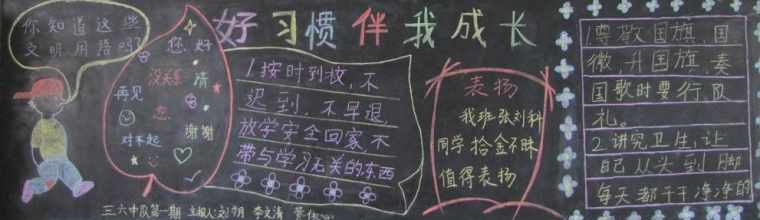 好习惯伴我成长
你知道这些
文明用语吗?
您好
没关系
请
再见
您
对不起
谢谢
1按时到校,不
迟到,不早退,
放学安全回家,不
带与学习无关的东西
表扬
我班张刘科
同学拾金不昧
值得表扬
1尊敬国旗、国
徽,升国旗、奏
国歌时要行队
礼。
2.讲究卫生,让
自己从头到脚
每天都干干净净的
三六中队第一期
李文清